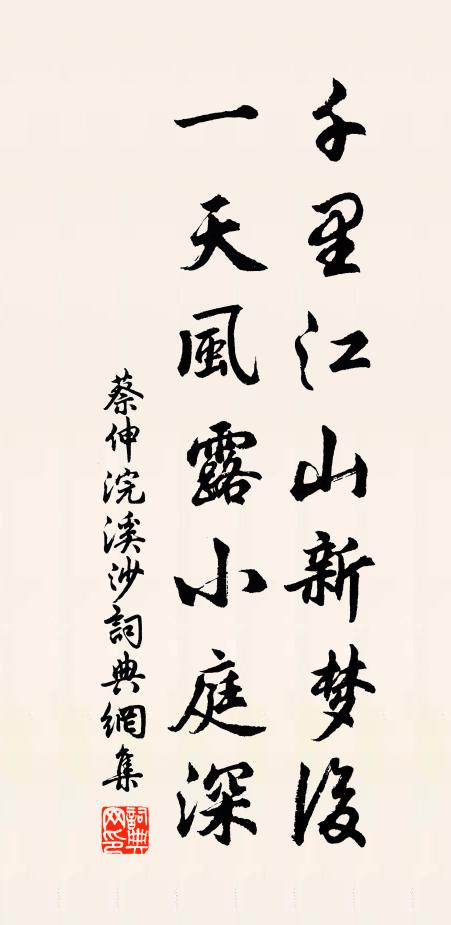 千里江山新梦後
一天風露小庭深
蔡伸浣溪沙詞典網集
詞典網印